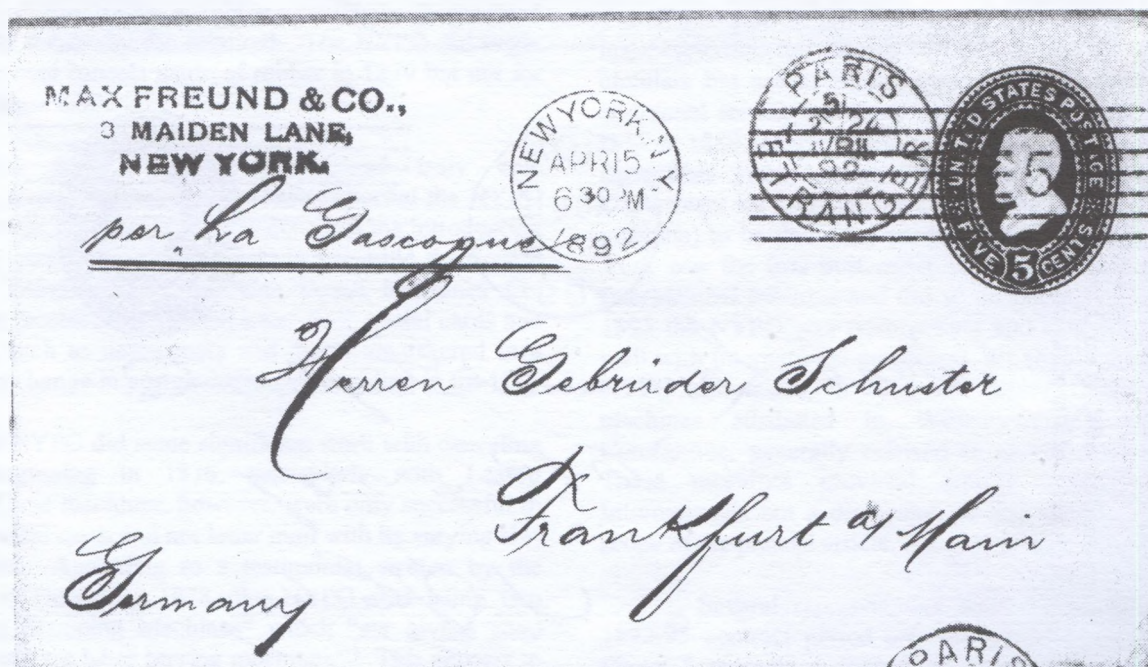 MAX FREUND & CO.,
3 MAIDEN LANE,
NEW YORK.
per "La Gascogne"
NEW YORK, N.Y.
APR 15
630 PM
1892
PARIS
ETRANGER
UNITED STATES POSTAGE
FIVE 5 CENTS
Herren Gebrüder Schuster
Frankfurt a/ Main
Germany
PARIS